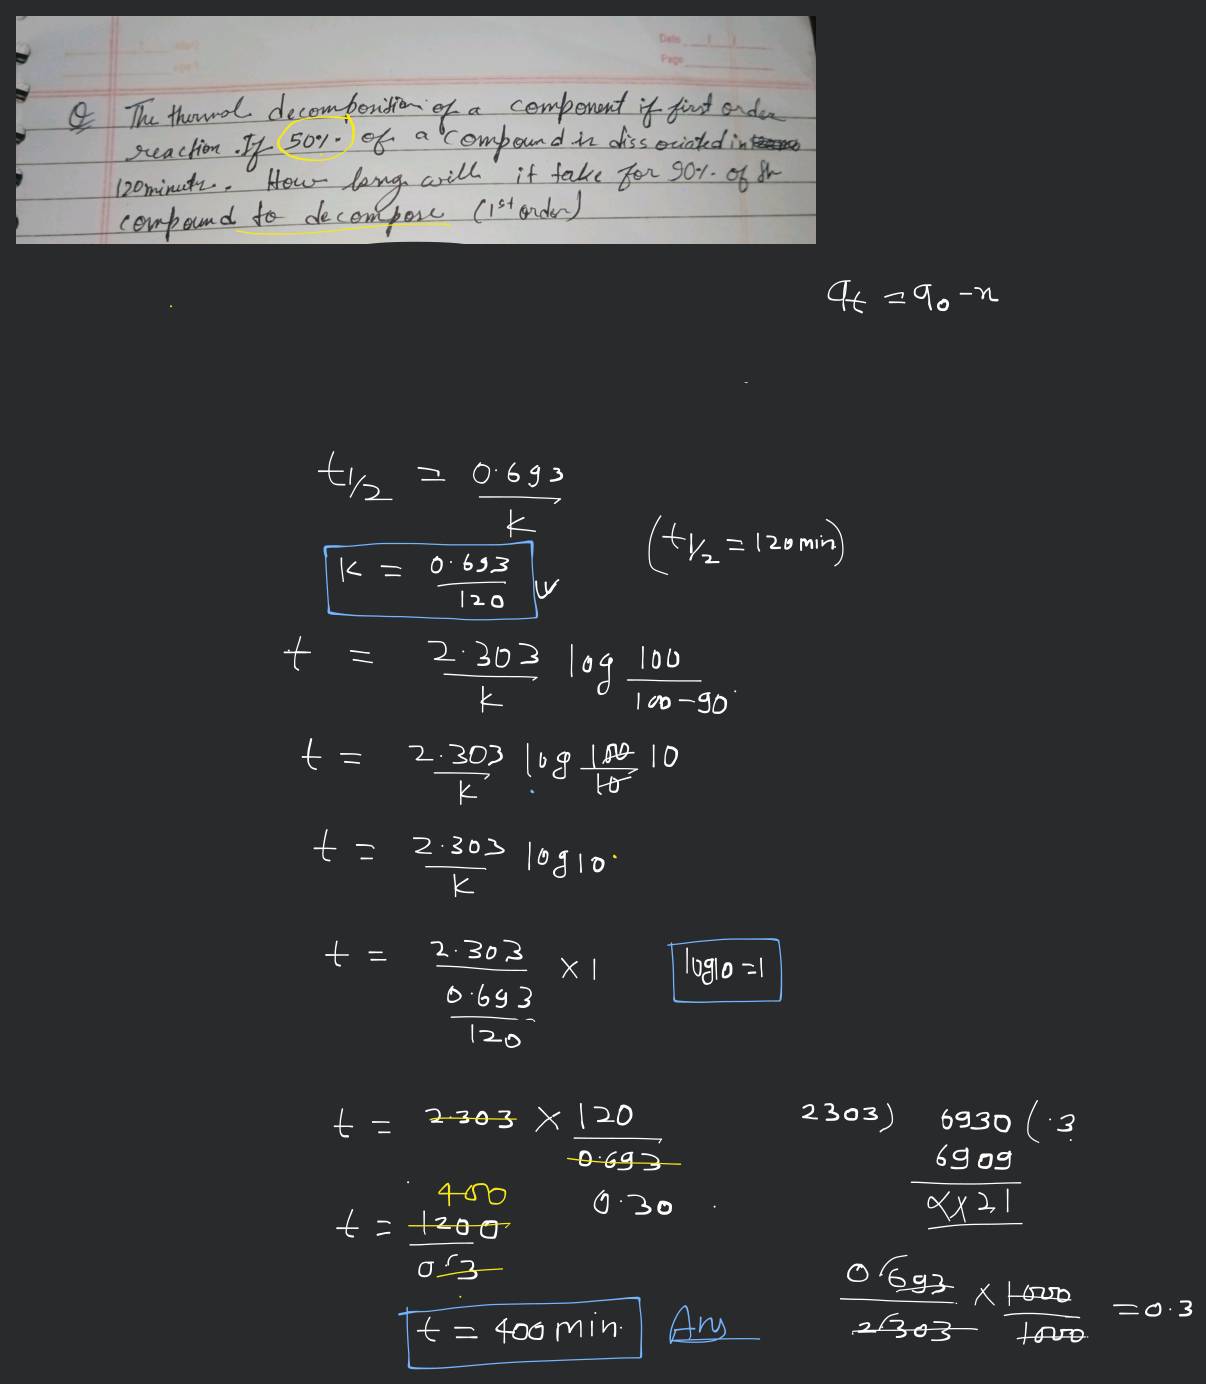 Date
Page
Q The thermal decomposition of a component if first order
reaction. If 50% of a compound is dissociated in
120 minute. How long will it take for 90% of the
compound to decompose (1st order)
at = a0 - x
t1/2 = 0.693/K
(t1/2 = 120 min)
K = 0.693/120
t = 2.303/K log 100/100-90
t = 2.303/K log 100/10 10
t = 2.303/K log10
t = 2.303/0.693/120 × 1
log10 = 1
t = 2.303 × 120/0.693
0.30
2303) 6930 (.3
6909
××21
400
t = 1200/0.3
0.693/2.303 × 1000/1000 = 0.3
t = 400 min. Ans